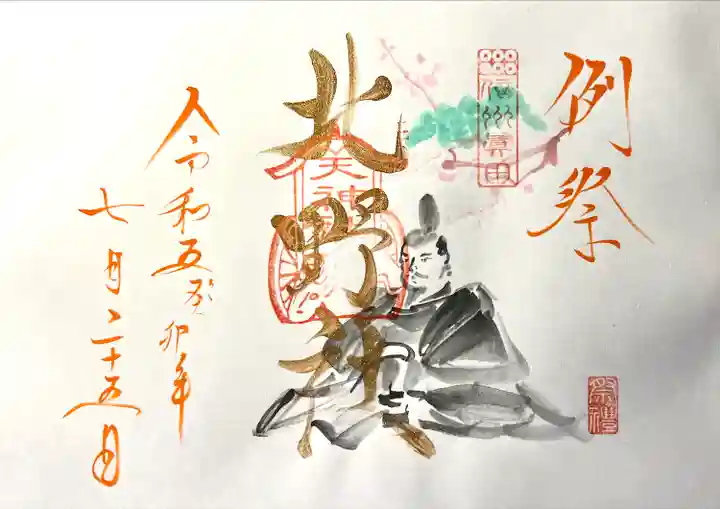 例祭
信州眞田
北野社
天神
祭禮
令和五癸卯年
七月二十五日